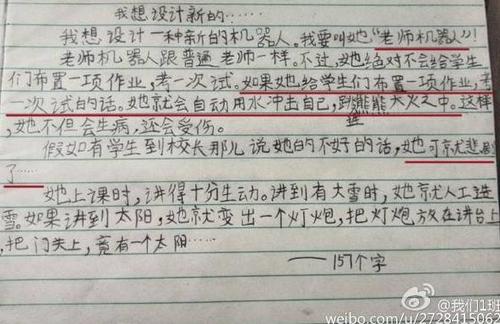 我想设计新的……
我想设计一种新的机器人。我要叫她“老师机器人”!
老师机器人跟普通老师一样。不过,她绝对不会给学生
们布置一项作业,考一次试。如果她给学生们布置一项作业,考
一次试的话。她就会自动用水冲击自己,到熊熊大火之中。这样
进
,她不但会生病,还会受伤。
假如有学生到校长那儿说她的不好的话,她可就悲剧
了……
她上课时,讲得十分生动。讲到有大雪时,她就人工造
雪。如果讲到太阳,她就变出一个灯炮,把灯炮放在讲台上
,把门关上,竟有一个太阳……
——157个字
@我们1班
weibo.com/u/2728415062